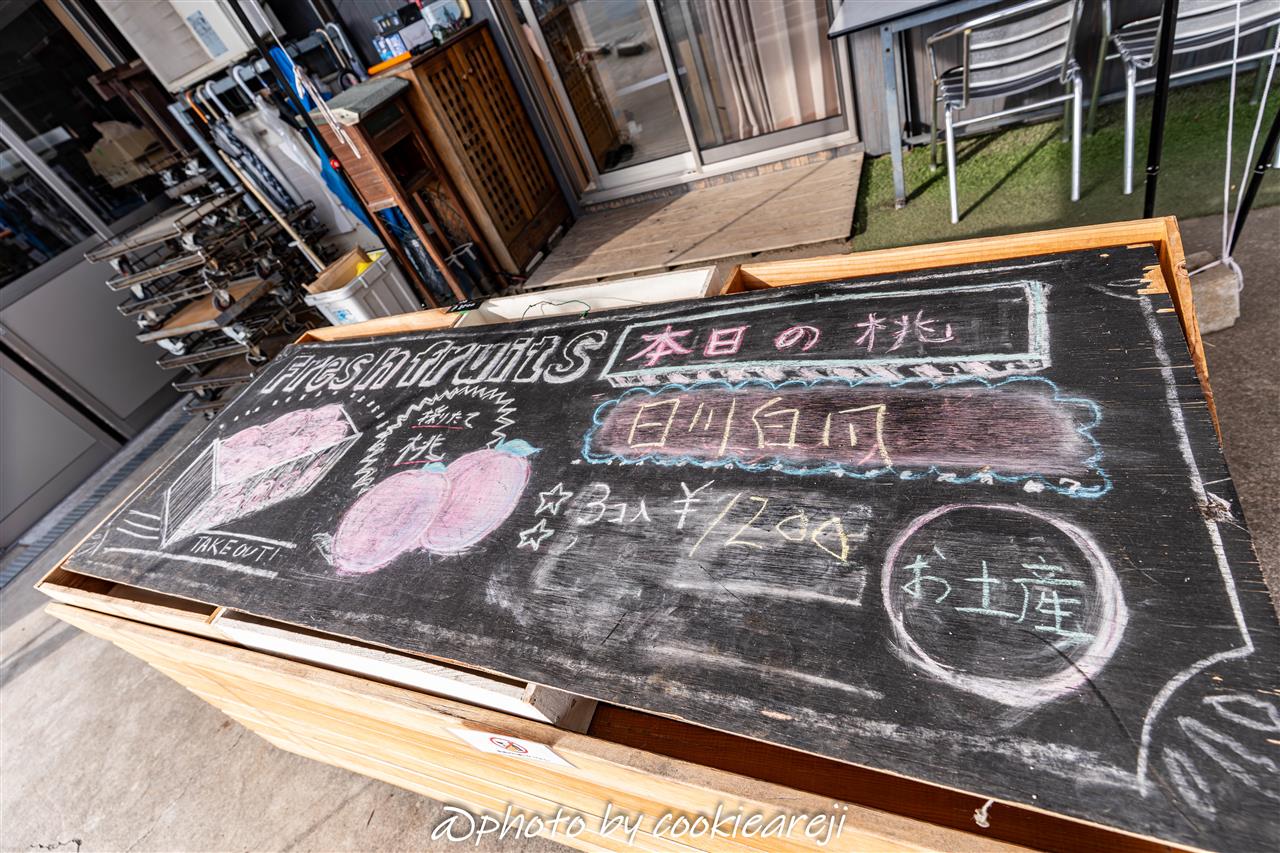 Fresh fruits
本日の桃
採りたて
桃
日川白凤
3コ入 ¥1200
TAKE OUT!
お土産
@photo by cookieareji